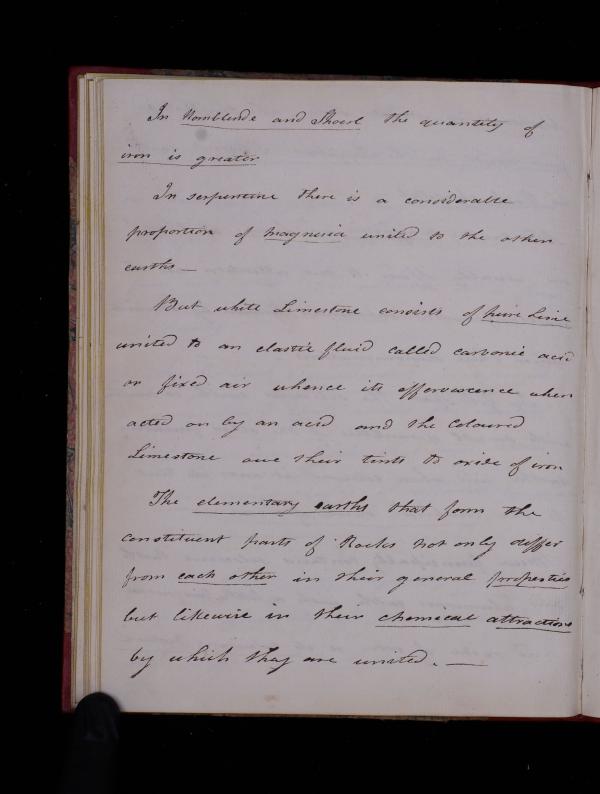 In Hornblende and Shoerl the quantity of
iron is greater
In serpentine there is a considerable
proportion of magnesia united to the other
earths —
But white Limestone consists of pure Lime
united to an elastic fluid called carbonic acid
or fixed air whence its effervescence when
acted on by an acid and the Coloured
Limestone owe their tints to oxide of iron
The elementary earths that form the
constituent parts of Rocks not only differ
from each other in their general properties
but likewise in their chemical attractions
by which they are united. —